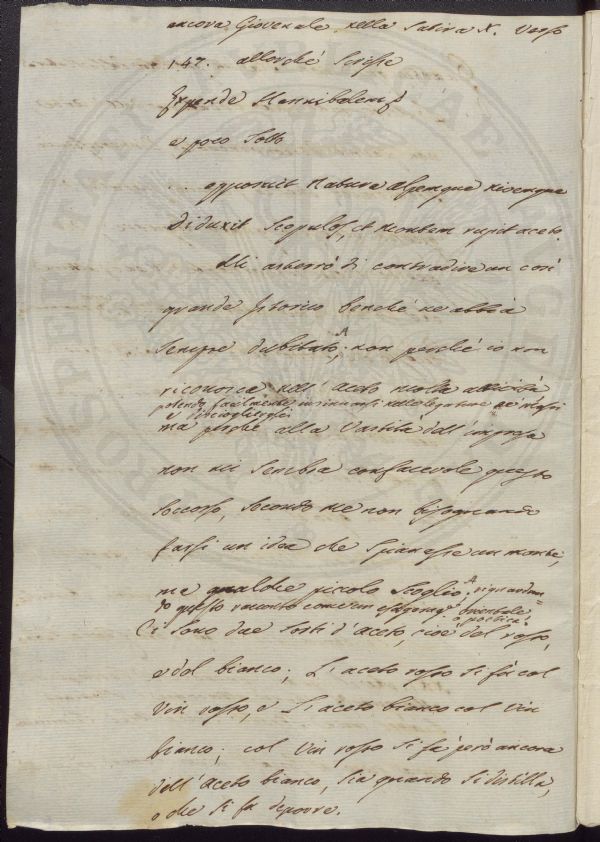 ancora Giovenale nella Satira X. Verso
147. allorché Scrisse
Expende Hannibalem
e poco Sotto
opposuit Natura Alpemque nivemque
Diduxit Scopulos, et montem rupit aceto.
Mi asterrò di contradire un così
grande Istorico benché ne abbia
Sempre dubitato, non perché io non
riconosca nell' aceto molta attività
potendo facilmente insinuarsi nelle legature
e discioglierli
ma perché alla Vastità dell' impresa
non mi Sembra confacevole questo
Soccorso, Secondo me non bisognando
farsi un idea che Spianasse un monte,
ma qualche piccolo Scoglio, riguardan-
do questo racconto come un espressione orientale
o poetica.
Ci Sono due Sorti d'aceto, cioè del rosso,
e del bianco; L'aceto rosso Si fà col
Vin rosso, e L'aceto bianco col Vin
bianco; col Vin rosso Si fà però ancora
dell' Aceto bianco, Sia quando Si distilla,
o che Si fa